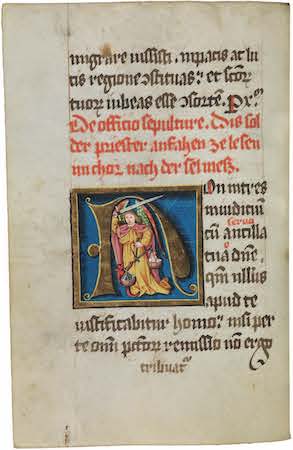 migrare iussisti. in pacis ac lu
cis regione ɔstituas: et scor̄
tuor̄ iubeas esse ɔsortē. P x̄
De officio sepulture. Dis sol
der priester anfahen ze lesen
im chor nach der sel meß.
Non intres
in iudiciuʒ
servo
cū ancilla
o
tua dn̄e.
qm̄ nullus
apud te
iustificabitur homo: nisi per
te om̄ pctor̄ remissio nō ergo
tribuat᷑